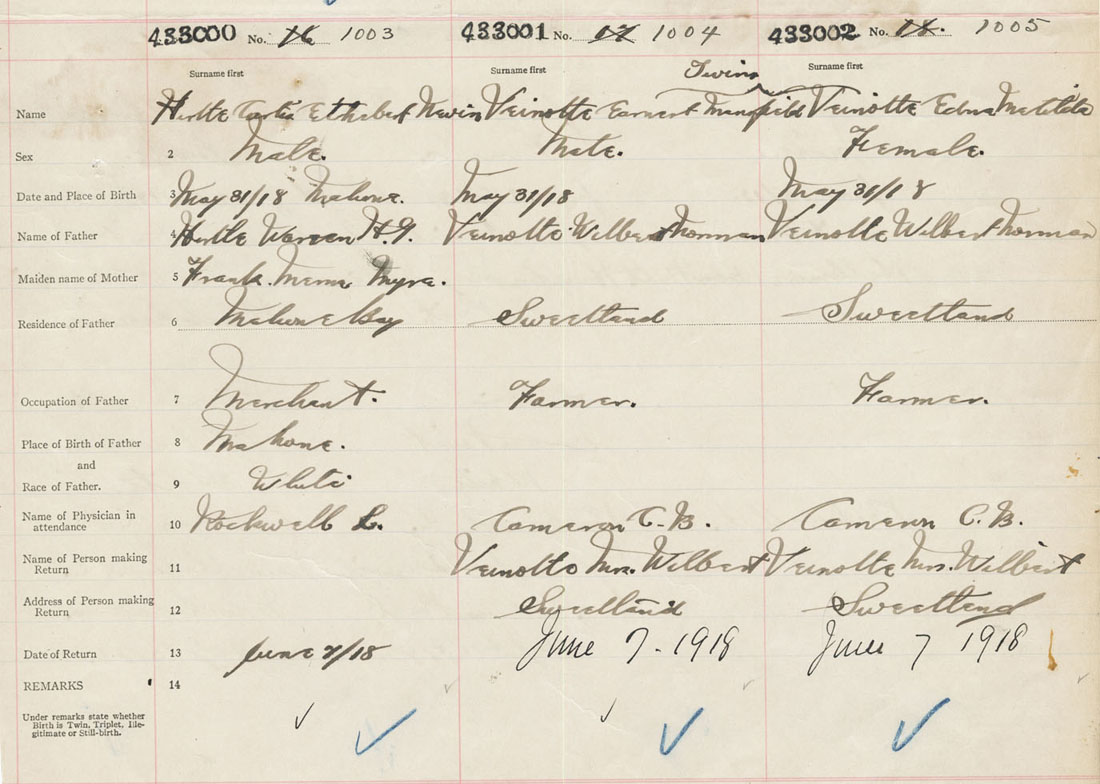 433000 No. 16 1003 433001 No. 17 1004 433002 No. 18. 1005
Surname first Surname first Twins Surname first
Name Hirtle Ethelbert Nevin Veinotte Earnest Mansfield Veinotte Edna Matilda
Sex 2 Male. Male. Female.
Date and Place of Birth 3 May 31/18 Mahone. May 31/18 May 31/18
Name of Father 4 Hirtle Warren H.G. Veinotte Wilbert Norman Veinotte Wilbert Norman
Maiden name of Mother 5 Frank. Myra.
Residence of Father 6 Mahone Bay Sweetland Sweetland
Occupation of Father 7 Merchant. Farmer. Farmer.
Place of Birth of Father 8 Mahone.
and
Race of Father. 9 White
Name of Physician in
attendance 10 Rockwell L. Cameron C.B. Cameron C.B.
Name of Person making
Return 11 Veinotte Mrs. Wilbert Veinotte Mrs. Wilbert
Address of Person making
Return 12 Sweetland Sweetland
Date of Return 13 June 7/18 June 7-1918 June 7 1918
REMARKS 14
Under remarks state whether
Birth is Twin, Triplet, Ille-
gitimate or Still-birth.